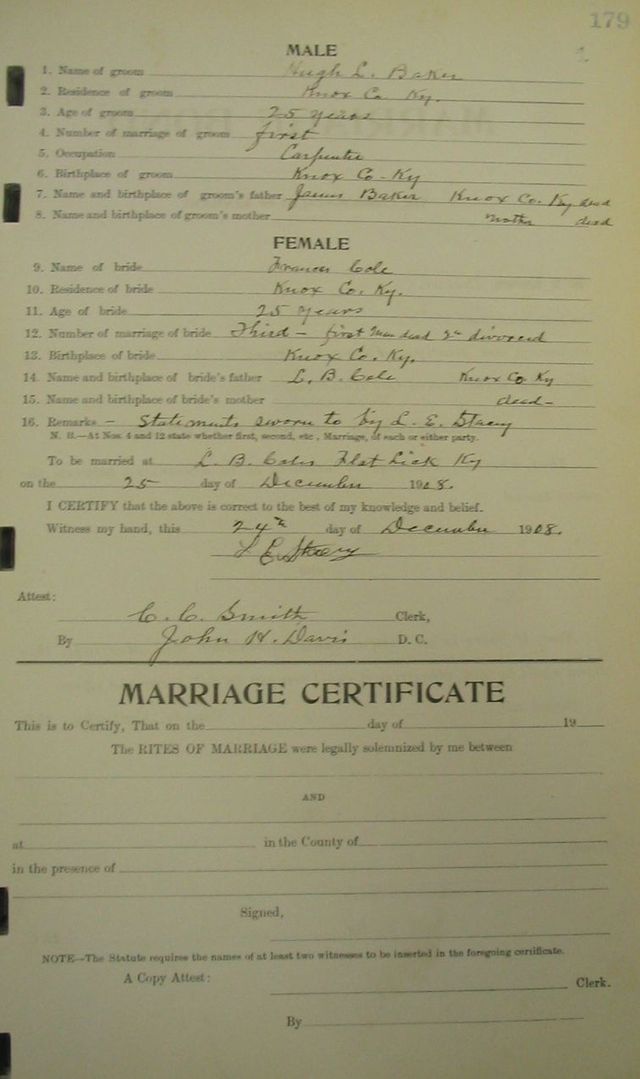 179
MALE
1. Name of groom Hugh L. Baker
2. Residence of groom Knox Co. Ky.
3. Age of groom 25 years
4. Number of marriage of groom first
5. Occupation Carpenter
6. Birthplace of groom Knox Co - Ky
7. Name and birthplace of groom's father James Baker Knox Co. Ky dead
8. Name and birthplace of groom's mother mother dead
FEMALE
9. Name of bride Frances Cole
10. Residence of bride Knox Co. Ky.
11. Age of bride 25 years
12. Number of marriage of bride Third - first man dead 2nd divorced
13. Birthplace of bride Knox Co. Ky.
14. Name and birthplace of bride's father L. B. Cole Knox Co Ky
15. Name and birthplace of bride's mother dead -
16. Remarks - Statements sworn to by L. E. Stacy
N. B.—At Nos. 4 and 12 state whether first, second, etc, Marriage, of each or either party.
To be married at L. B. Coles Flat Lick Ky
on the 25 day of December 1908.
I CERTIFY that the above is correct to the best of my knowledge and belief.
Witness my hand, this 24th day of December 1908.
L E Stacy
Attest:
C. C. Smith Clerk,
By John H. Davis D. C.
MARRIAGE CERTIFICATE
This is to Certify, That on the day of 19
The RITES OF MARRIAGE were legally solemnized by me between
AND
at in the County of
in the presence of
Signed,
NOTE—The Statute requires the names of at least two witnesses to be inserted in the foregoing certificate.
A Copy Attest:
Clerk.
By